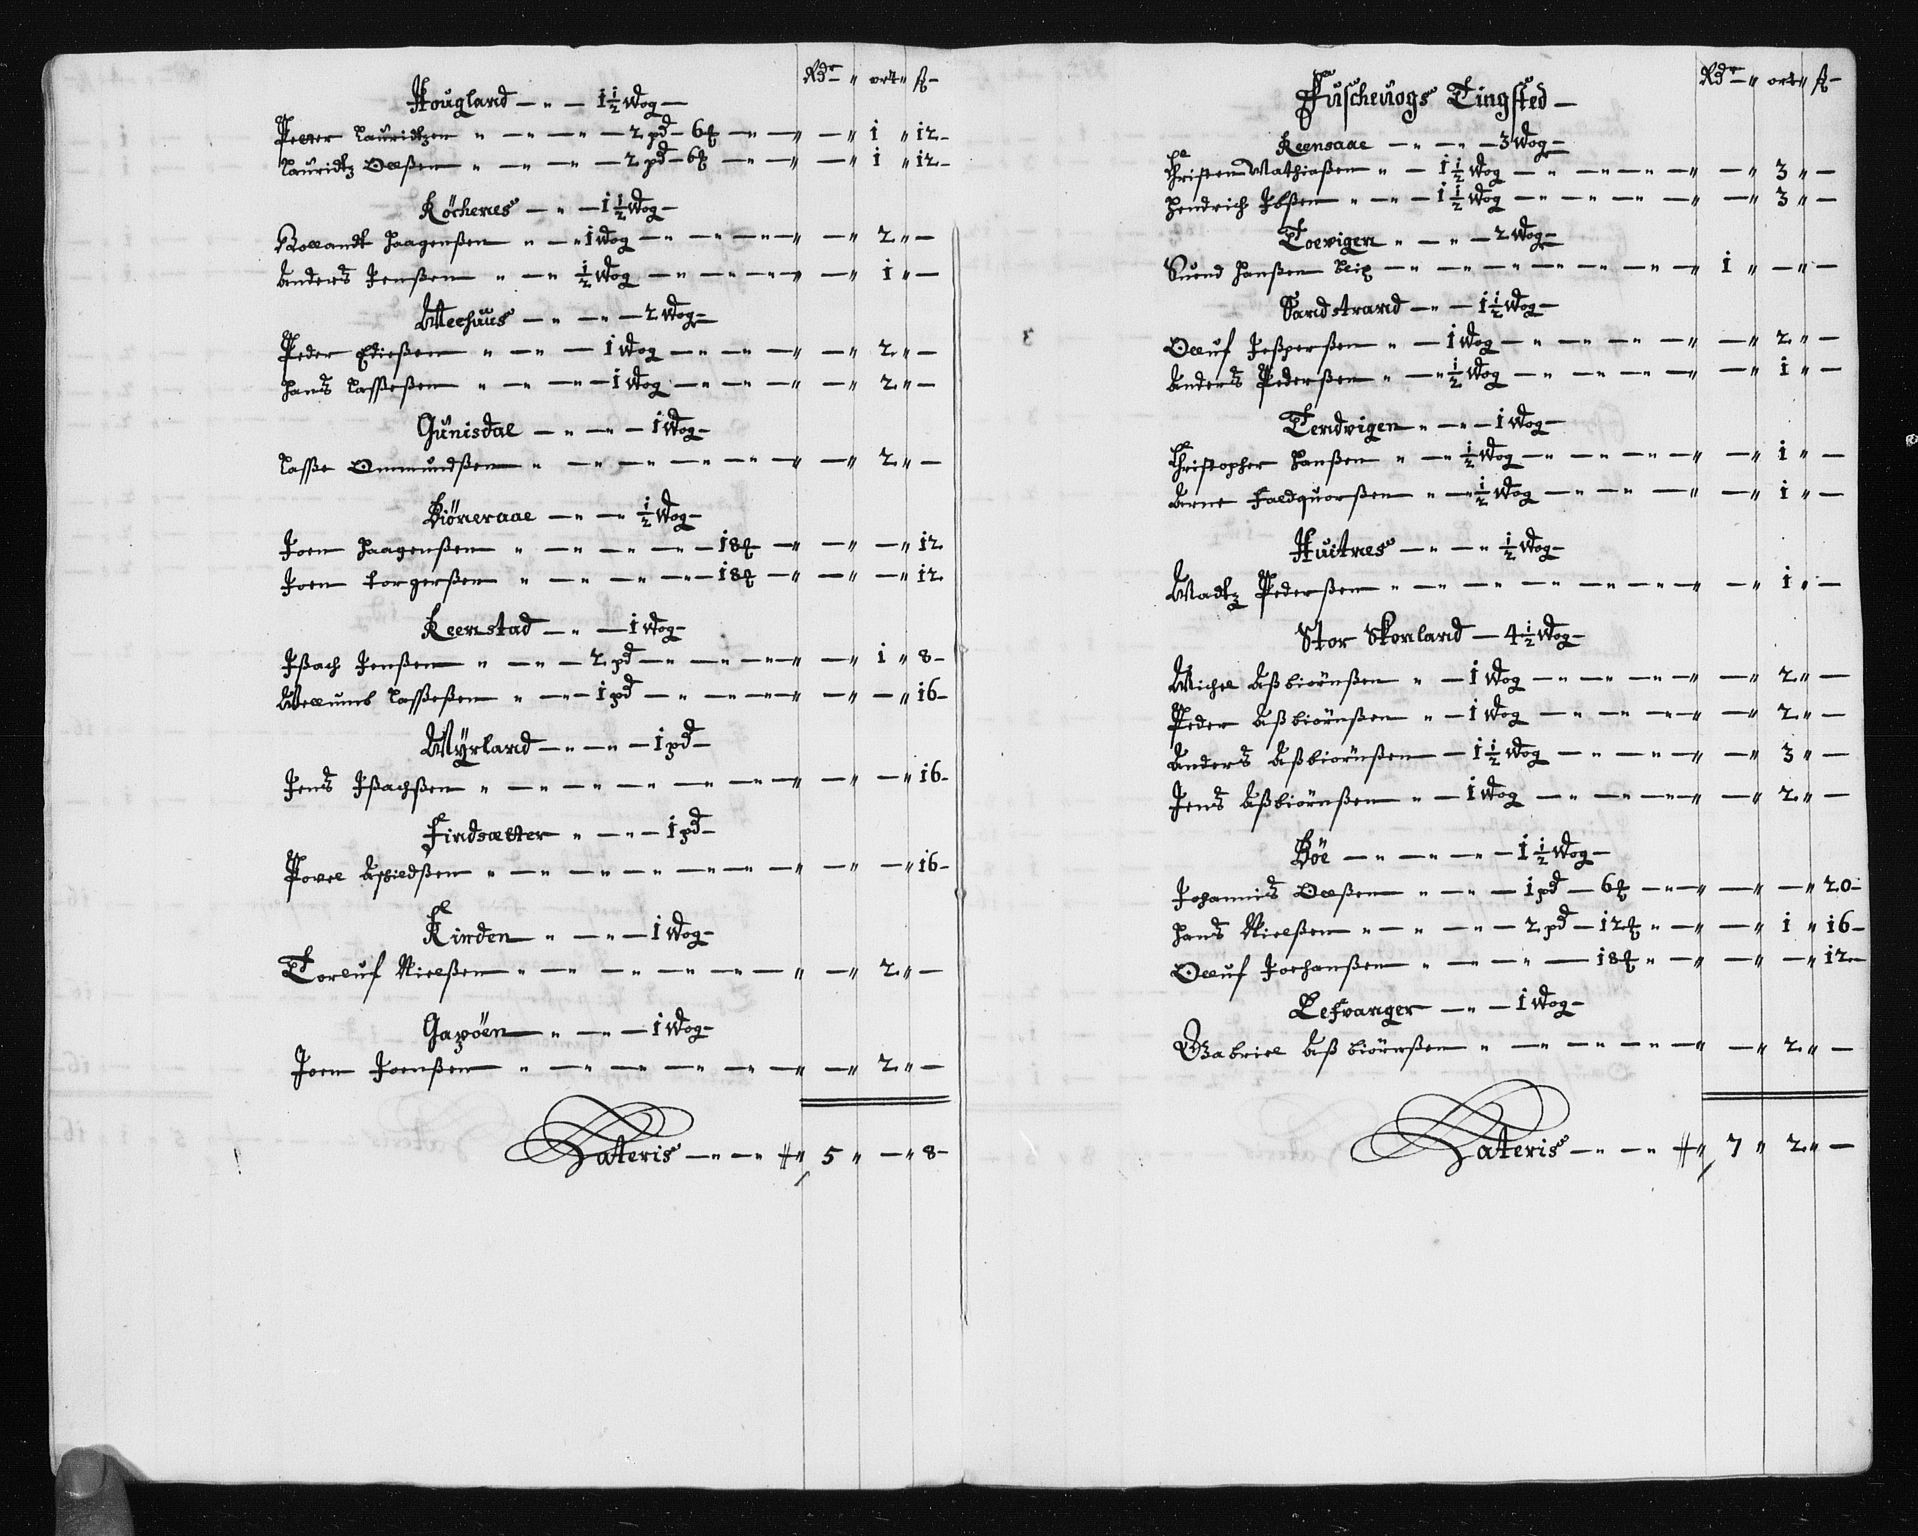 Rdr " ort " ß
Hougland — " — 1½ Wog —
Petter Lauridtzen " — " — 2 pd — 6 ℔ — " — " 1 " 12 —
Lauridtz Olleßen " — " — 2 pd — 6 ℔ — " — " 1 " 12 —
Köchenes — " — 1½ Wog —
Bollandt Haagenßen " — " 1 Wog — " — " 2 " —
Anders Jenßen " — " ½ Wog — " — " 1 " —
Meehuus — " — " — 2 Wog —
Peder Edisßen " — " — 1 Wog — " — " 2 " —
Hans Lasseßen " — " — 1 Wog — " — " 2 " —
Gunisdal — " — " — 1 Wog —
Lasse Ommundßen " — " — " — " 2 " —
Biöneraae — " — " ½ Wog —
Joen Haagenßen " — " — " — 18 ℔ — " — " — " 12
Joen Torgerßen " — " — " — 18 ℔ — " — " — " 12
Reenstad — " — 1 Wog —
Ißach Jenßen " — " — 2 pd — " — " 1 " 8 —
Mellumb Lasseßen " — " — 1 pd — " — " — " 16 —
Myrland — " — " — 1 pd —
Jens Ißachßen " — " — " — " — " 16 —
Findsætter " — " — 1 pd —
Povel Askildßen " — " — " — " — " 16 —
Kinden " — " — 1 Wog —
Torluf Nielßen " — " — " — " 2 " —
Gapöen — " — " — 1 Wog —
Joen Joenßen " — " — " — " 2 " —
Lateris — " — " 5 " — " 8 —
Rdr " ort " ß
Fuschevogs Tingsted —
Reensaae — " — " — 3 Wog —
Christen Mathiaßen " — 1½ Wog — " — " 3 " —
Hendrich Ibßen " — " — 1½ Wog — " — " 3 " —
Toevigen " — " — 2 Wog —
Suend Hanßen — " — " — " 1 " — " —
Sandstrand — " — 1½ Wog —
Olluf Jesperßen " — 1 Wog — " — " 2 " —
Anders Pederßen " — " ½ Wog — " — " 1 " —
Tendvigen " — " — 1 Wog —
Christopher Hanßen " — " ½ Wog — " — " 1 " —
Arne Faldquorßen " — " ½ Wog — " — " 1 " —
Huitnes — " — " ½ Wog —
Madtz Pederßen " — " — " — " 1 " —
Stor Skonland — 4½ Wog —
Michel Aßbiörnßen " — 1 Wog — " — " 2 " —
Peder Aßbiörnßen " — 1 Wog — " — " 2 " —
Anders Aßbiörnßen — 1½ Wog — " — " 3 " —
Jens Aßbiörnßen " — 1 Wog — " — " 2 " —
Böe — " — " — " — 1½ Wog —
Johannis Olleßen " — " — 1 pd — 6 ℔ — " — " — " 20 —
Hans Nielßen " — " — " — 2 pd — 12 ℔ " — " 1 " 16 —
Olluf Joehanßen " — " — " — 18 ℔ " — " — " 12 —
Lefvanger — " — 1 Wog —
Gabriel Aßbiörnßen " — " — " — " 2 " —
Lateris — " — " 7 " 2 " —